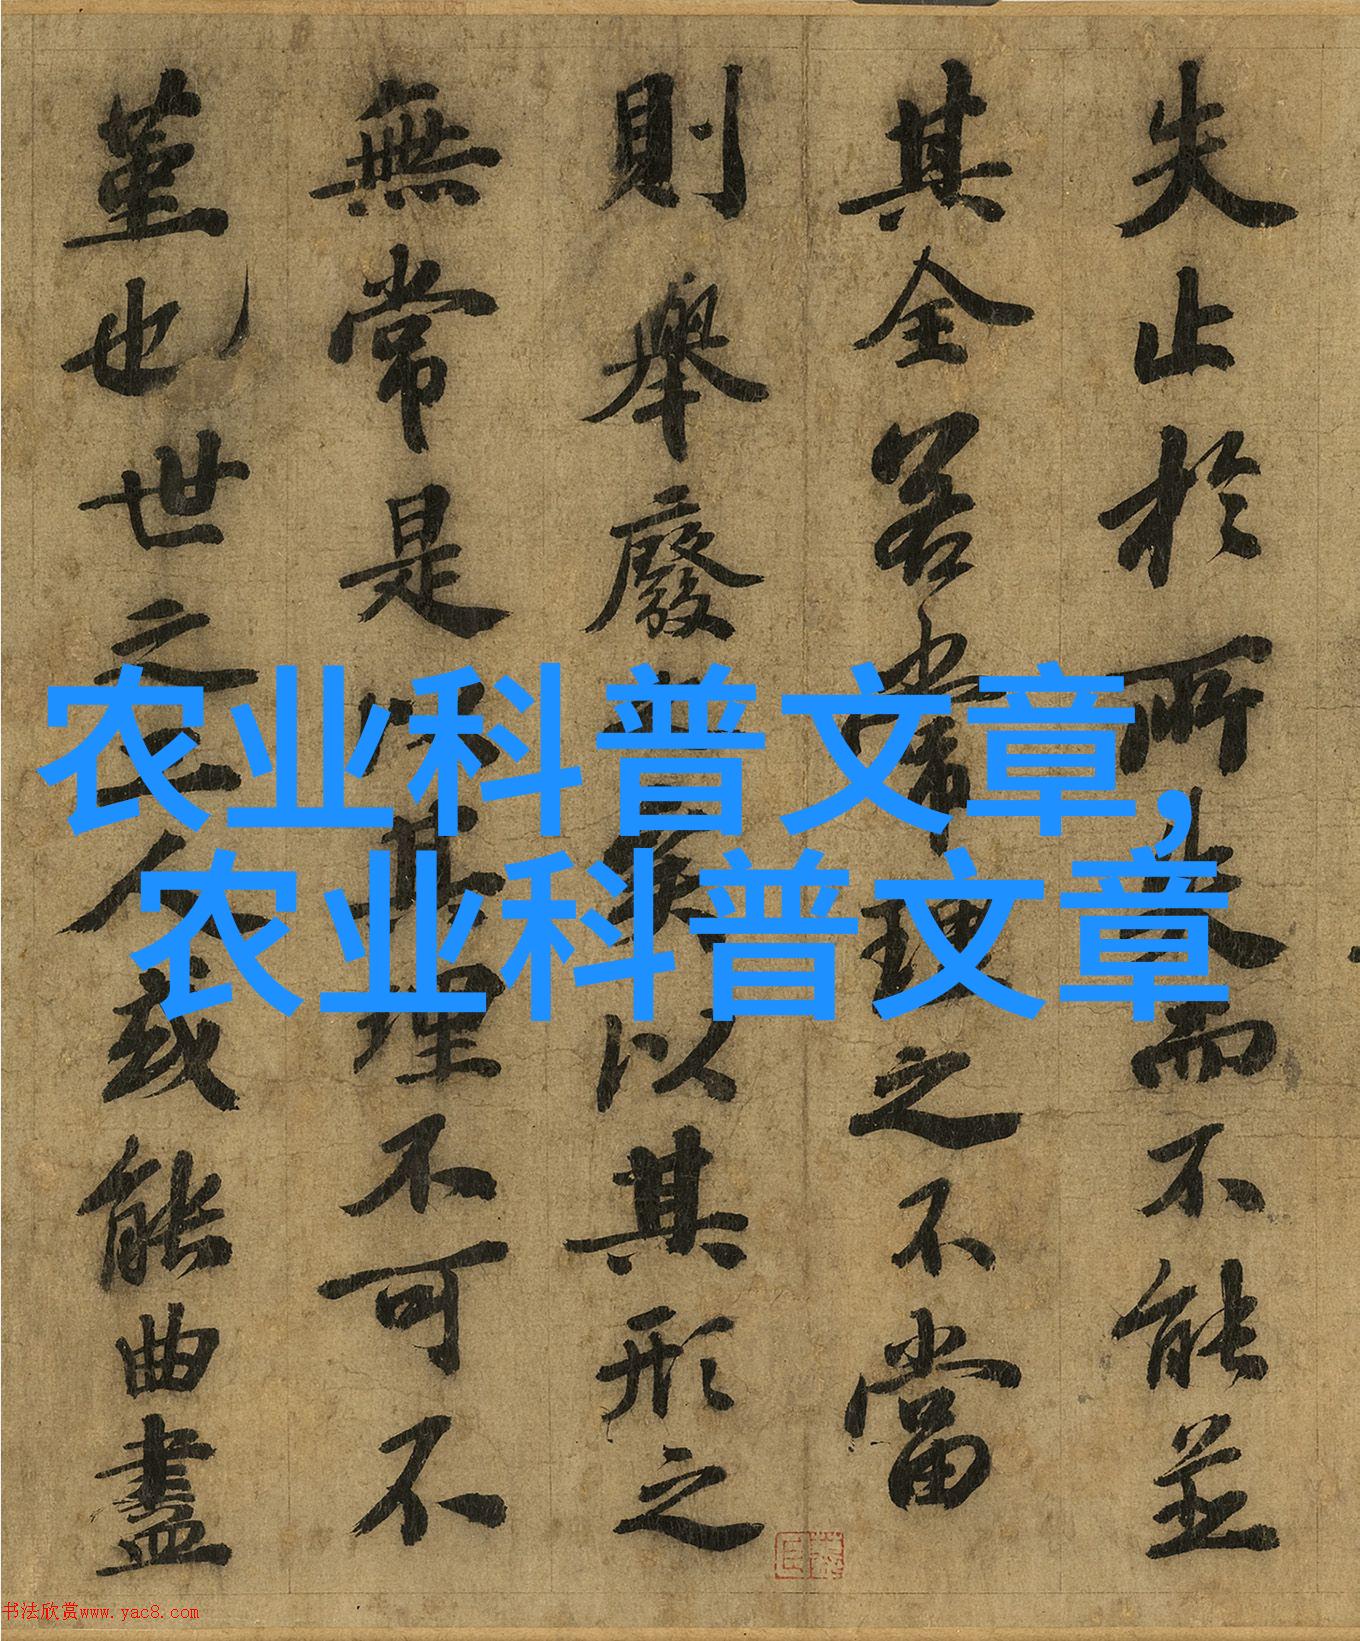 失止於所失而不能並
其全若常理之不當
則舉廢矣以其形之
無常是以其理不可不
堇也世之工人或能曲盡
农业科普文章,
农业科普文章
书法欣赏www.yac8.com